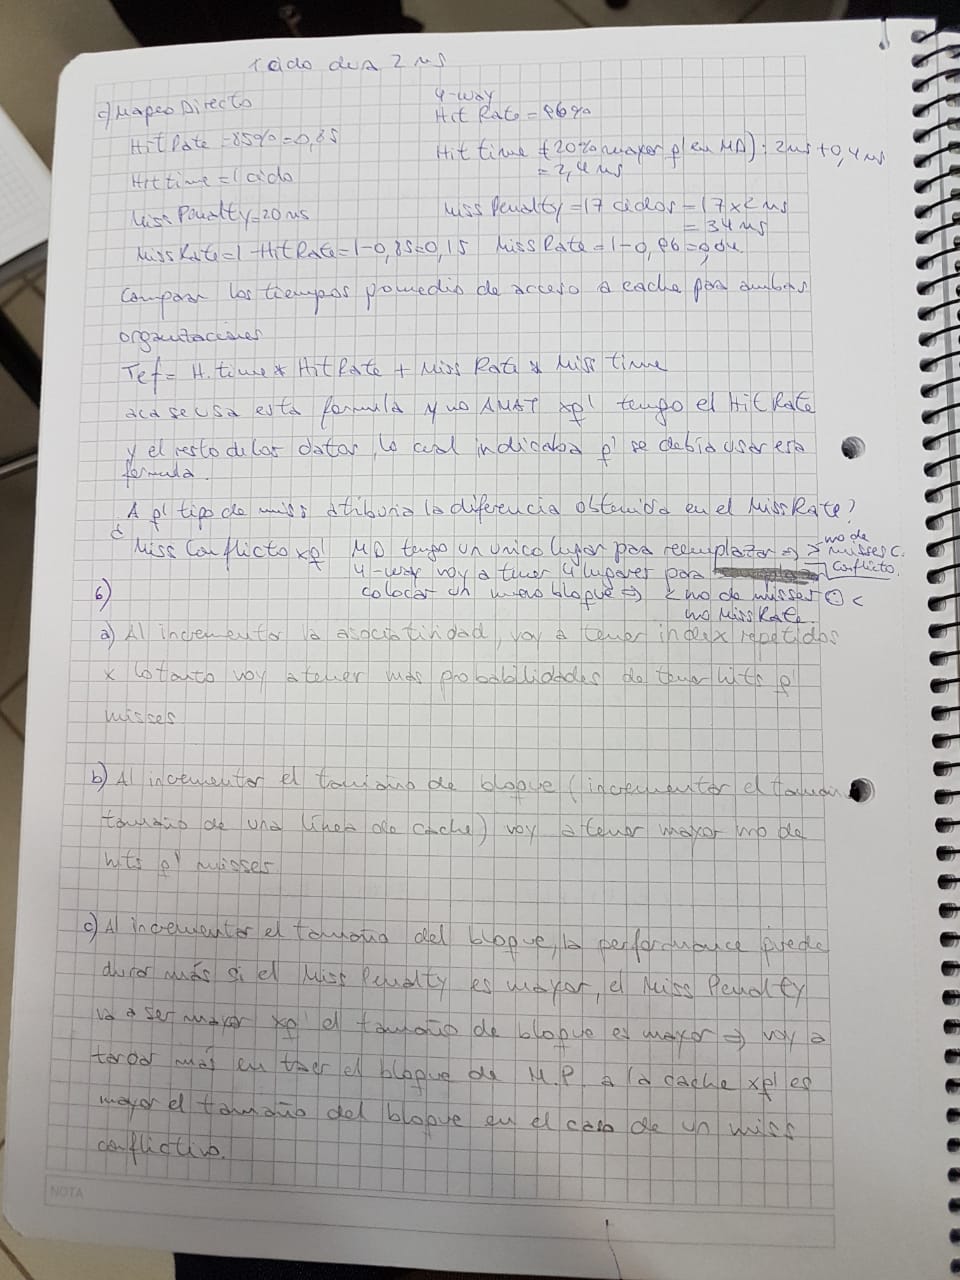 1 ciclo de 2 ns
c) Mapeo Directo
Hit Rate = 85% = 0,85
Hit time = 1 ciclo
Miss Penalty = 20 ns
Miss Rate = 1 - Hit Rate = 1 - 0,85 = 0,15
4-way
Hit Rate = 96%
Hit time (20% mayor q' en MD): 2ns + 0,4 ns
= 2,4 ns
Miss Penalty = 17 ciclos = 17 x 2 ns
= 34 ns
Miss Rate = 1 - 0,96 = 0,04
Comparar los tiempos promedio de acceso a cache para ambas
organizaciones
Tef = H. time * Hit Rate + Miss Rate * Miss time
acá se usa esta formula y no AMAT xq' tengo el Hit Rate
y el resto de los datos, lo cual indicaba q' se debía usar esa
formula.
¿A q' tipo de miss atribuiría la diferencia obtenida en el Miss Rate?
Miss Conflicto xq' MD tengo un unico lugar para reemplazar ⇒ > no de misses C.
Conflicto.
4-way voy a tener 4 lugares para
colocar un nuevo bloque ⇒ < no de misses <
no Miss Rate.
6)
a) Al incrementar la asociatividad, voy a tener index repetidos
x lo tanto voy a tener más probabilidades de tener hits q'
misses
b) Al incrementar el tamaño de bloque (incrementar el
tamaño de una línea de cache) voy a tener mayor no de
hits q' misses
c) Al incrementar el tamaño del bloque, la performance puede
durar más si el Miss Penalty es mayor, el Miss Penalty
va a ser mayor xq' el tamaño de bloque es mayor ⇒ voy a
tardar más en traer el bloque de M.P. a la cache xq' es
mayor el tamaño del bloque en el caso de un miss
conflictivo.
NOTA